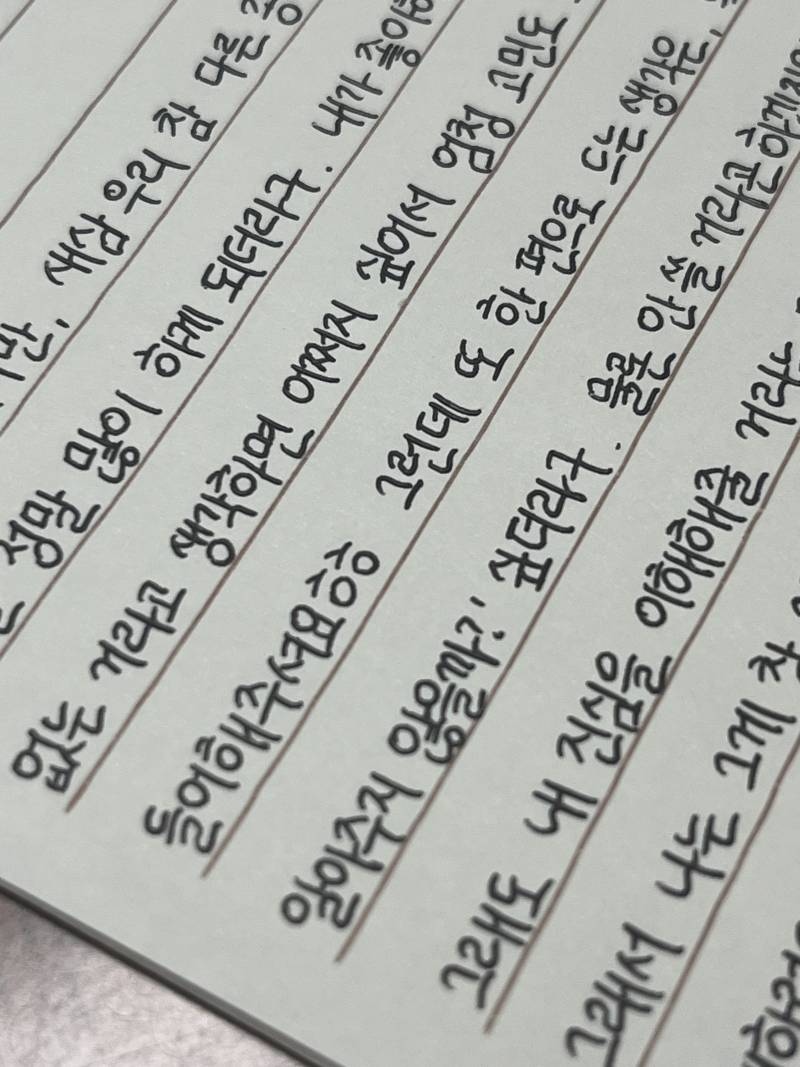 만, 새삼 우리 참 다른
정말 많이 하게 되더라구. 내가
없는 거라고 생각하면 어쩌지 싶어서 엄청 고민도
들어해주셔요ㅎㅎ 그런데 또 한 편으로 드는 생각은,
알아주지 않을까?' 싶더라구. 물론 안 쓸 거라곤
그래도 내 진심을 이해해줄
그래서 나는 그게 참